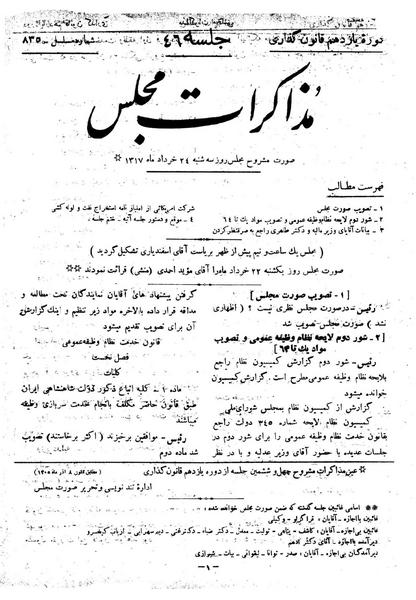 دورهٔ یازدهم قانون گذاری
جلسه ۴۶
شماره مسلسل ـ ۸۳۵
مذاکرات مجلس
صورت مشروح مجلس روز سه شنبه ۲۴ خرداد ماه ۱۳۱۷ ※
فهرست مطالب
۱ ـ تصویب صورت مجلس
۲ ـ شور دوم لایحه نظام وظیفه عمومی و تصویب مواد یك تا ۶۴
۳ ـ بیانات آقایان وزیر مالیه و دکتر طاهری راجع به صرفنظر کردن
شرکت امریکائی از امتیاز نامه استخراج نفت و لوله کشی
۴ ـ موقع و دستور جلسه آتیه ـ ختم جلسه
( مجلس یك ساعت و نیم پیش از ظهر بریاست آقای اسفندیاری تشکیل گردید )
صورت مجلس روز یکشنبه ۲۲ خرداد ماه را آقای مؤید احدی (منشی) قرائت نمودند ※※
[ ۱ ـ تصویب صورت مجلس ]
رئیس ـ در صورت مجلس نظری نیست ؟ ( اظهاری
نشد ) صورت مجلس تصویب شد
[ ۲ ـ شور دوم لایحه نظام وظیفه عمومی و تصویب
مواد یك تا ۶۴ ]
رئیس ـ شور دوم گزارش کمیسیون نظام راجع
بلایحه نظام وظیفه عمومی مطرح است . گزارش کمیسیون
خوانده میشود
گزارش از کمیسیون نظام بمجلس شورای ملی
کمیسیون نظام لایحه شماره ۳۴۵ دولت راجع
بقانون خدمت نظام وظیفه عمومی را برای شور دوم در
جلسات عدیده با حضور آقای وزیر عدلیه و با در نظر
گرفتن پیشنهاد های آقایان نمایندگان تحت مطالعه و
مداقه قرار داده بالاخره مواد زیر تنظیم و اینك گزارش
آن برای تصویب تقدیم میشود
قانون خدمت نظام وظیفه عمومی
فصل نخست
کلیات
ماده ۱ ـ کلیه اتباع ذکور دولت شاهنشاهی ایران
طبق قانون حاضر مکلف بانجام خدمت سربازی وظیفه
میباشند
رئیس ـ موافقین برخیزند ( اکثر برخاستند ) تصویب
شد ماده دوم
※ عین مذاکرات مشروح چهل و ششمین جلسه از دوره یازدهم قانون گذاری
اداره تند نویسی و تحریر صورت مجلس
※※ اسامی غائبین جلسه گذشته که ضمن صورت مجلس خوانده شده :
غائبین با اجازه ـ آقایان : قراگزلو ـ وکیلی
غائبین بی اجازه ـ آقایان :
دیرآمدگان با اجازه ـ آقای دکتر ادهم
دیرآمدگان بی اجازه ـ آقایان : صدر ـ توانا ـ لیقوانی ـ بیات ـ شیرازی
ـ۱ـ